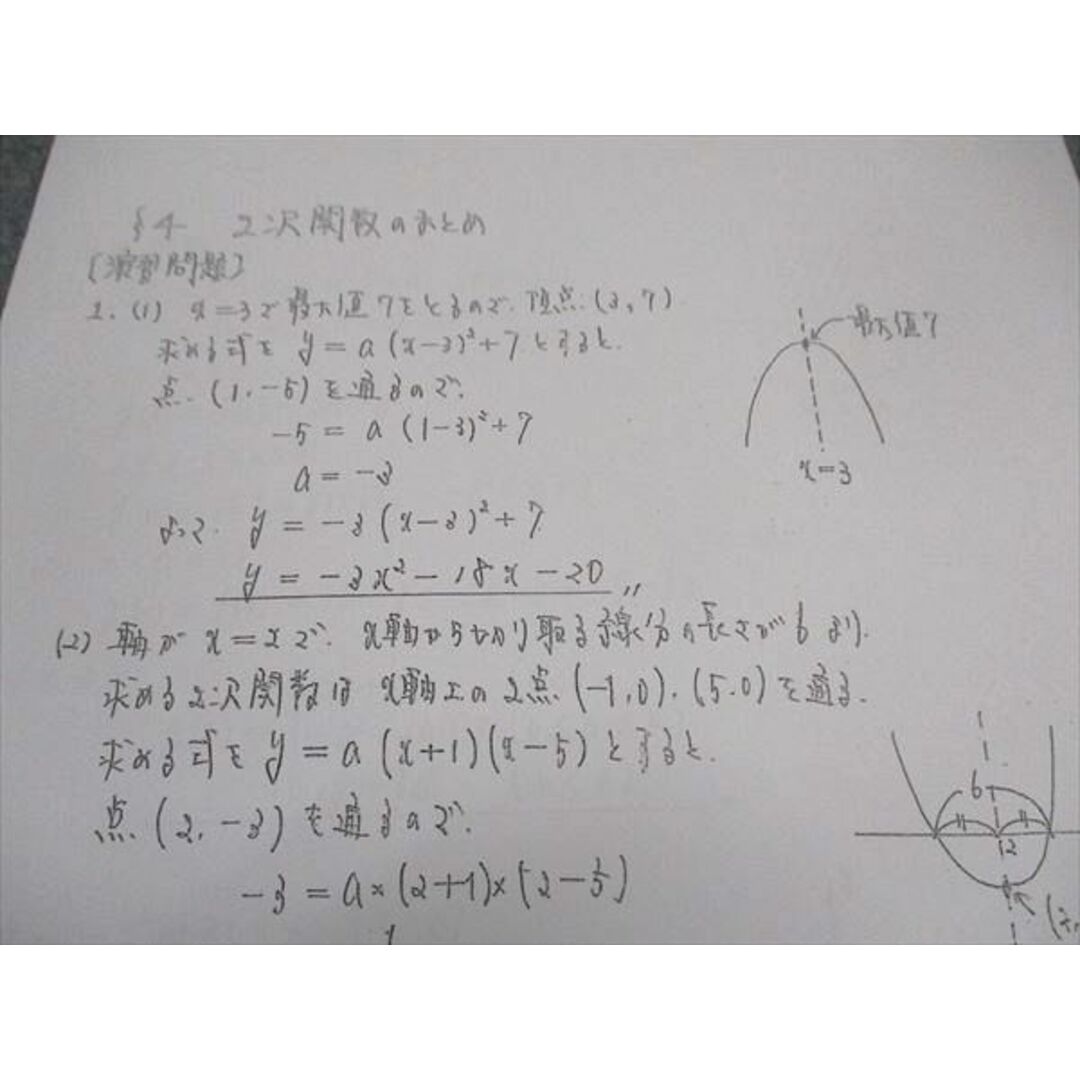 §4 2次関数のまとめ
[演習問題]
1. (1) x=3で最大値7をとるので、頂点(3,7)
求める式を y=a(x-3)²+7とすると、
点(1,-5)を通るので、
-5=a(1-3)²+7
a=-3
よって、y=-3(x-3)²+7
y=-3x²-18x-20〃
最大値7
x=3
(2) 軸がx=2で、x軸から切り取る線分の長さが6より、
求める2次関数はx軸上の2点(-1,0),(5,0)を通る。
求める式をy=a(x+1)(x-5)とすると、
点(2,-3)を通るので、
-3=a×(2+1)×(2-5)
6
2